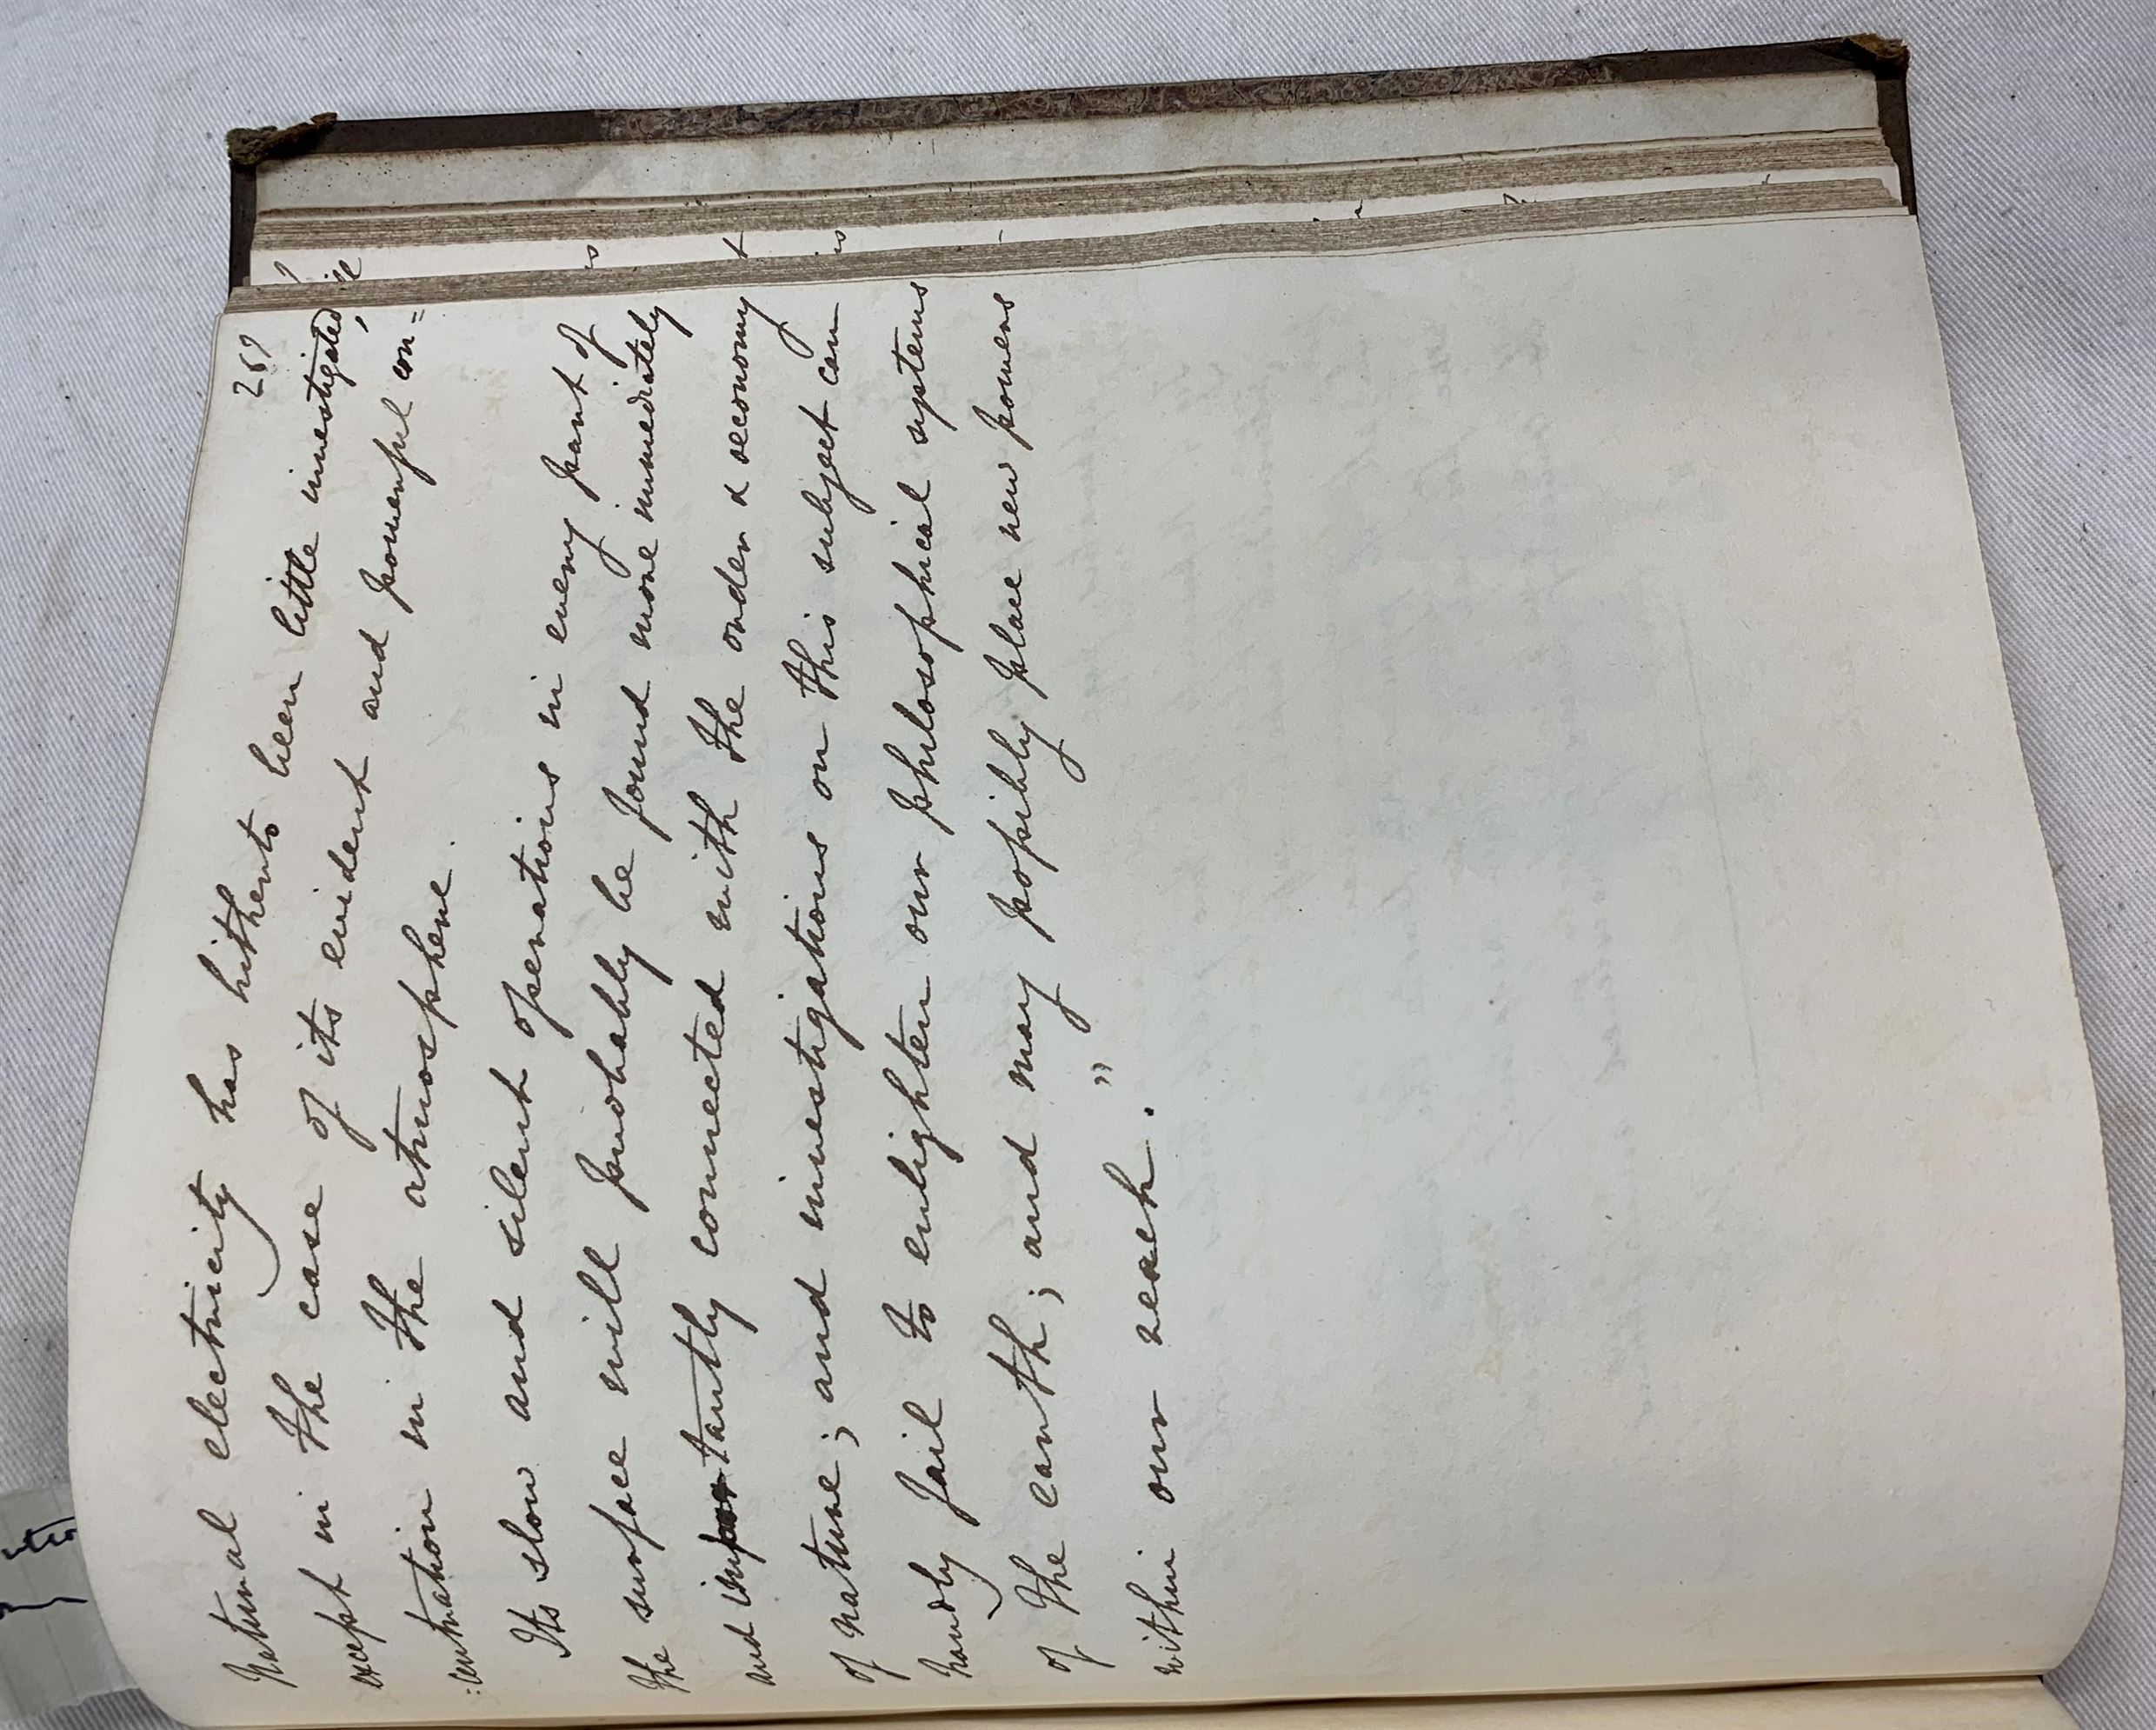 269
Natural electricity has hitherto been little investigated,
except in the case of its evident and powerful con=
:centration in the atmosphere.
Its slow and silent operations in every part of
the surface will probably be found more immediately
and importantly connected with the order & œconomy
of nature; and investigations on this subject can
hardly fail to enlighten our philosophical systems
of the earth; and may possibly place new powers
within our reach."